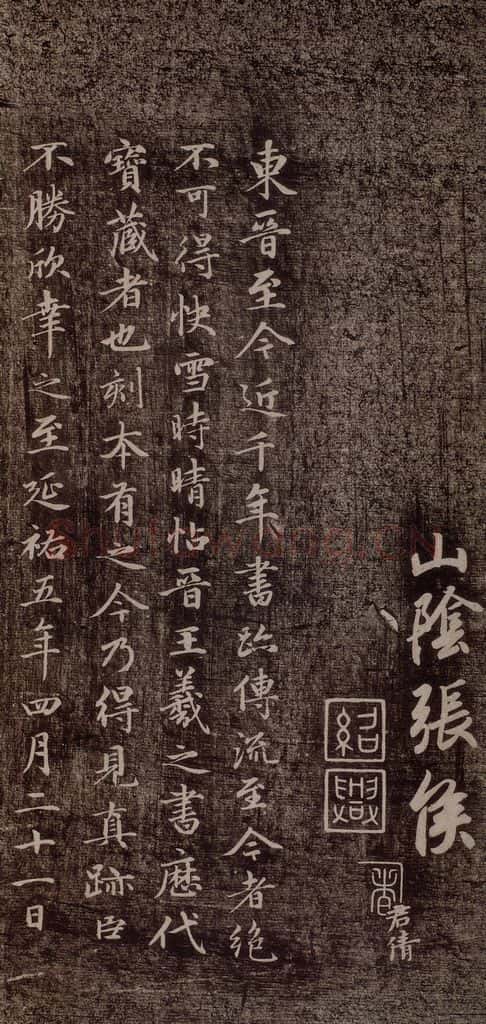 山陰張侯
紹興
君倩
東晉至今近千年書跡傳流至今者絕
不可得快雪時晴帖晉王羲之書歷代
寶藏者也刻本有之今乃得見真跡臣
不勝欣幸之至延祐五年四月二十一日